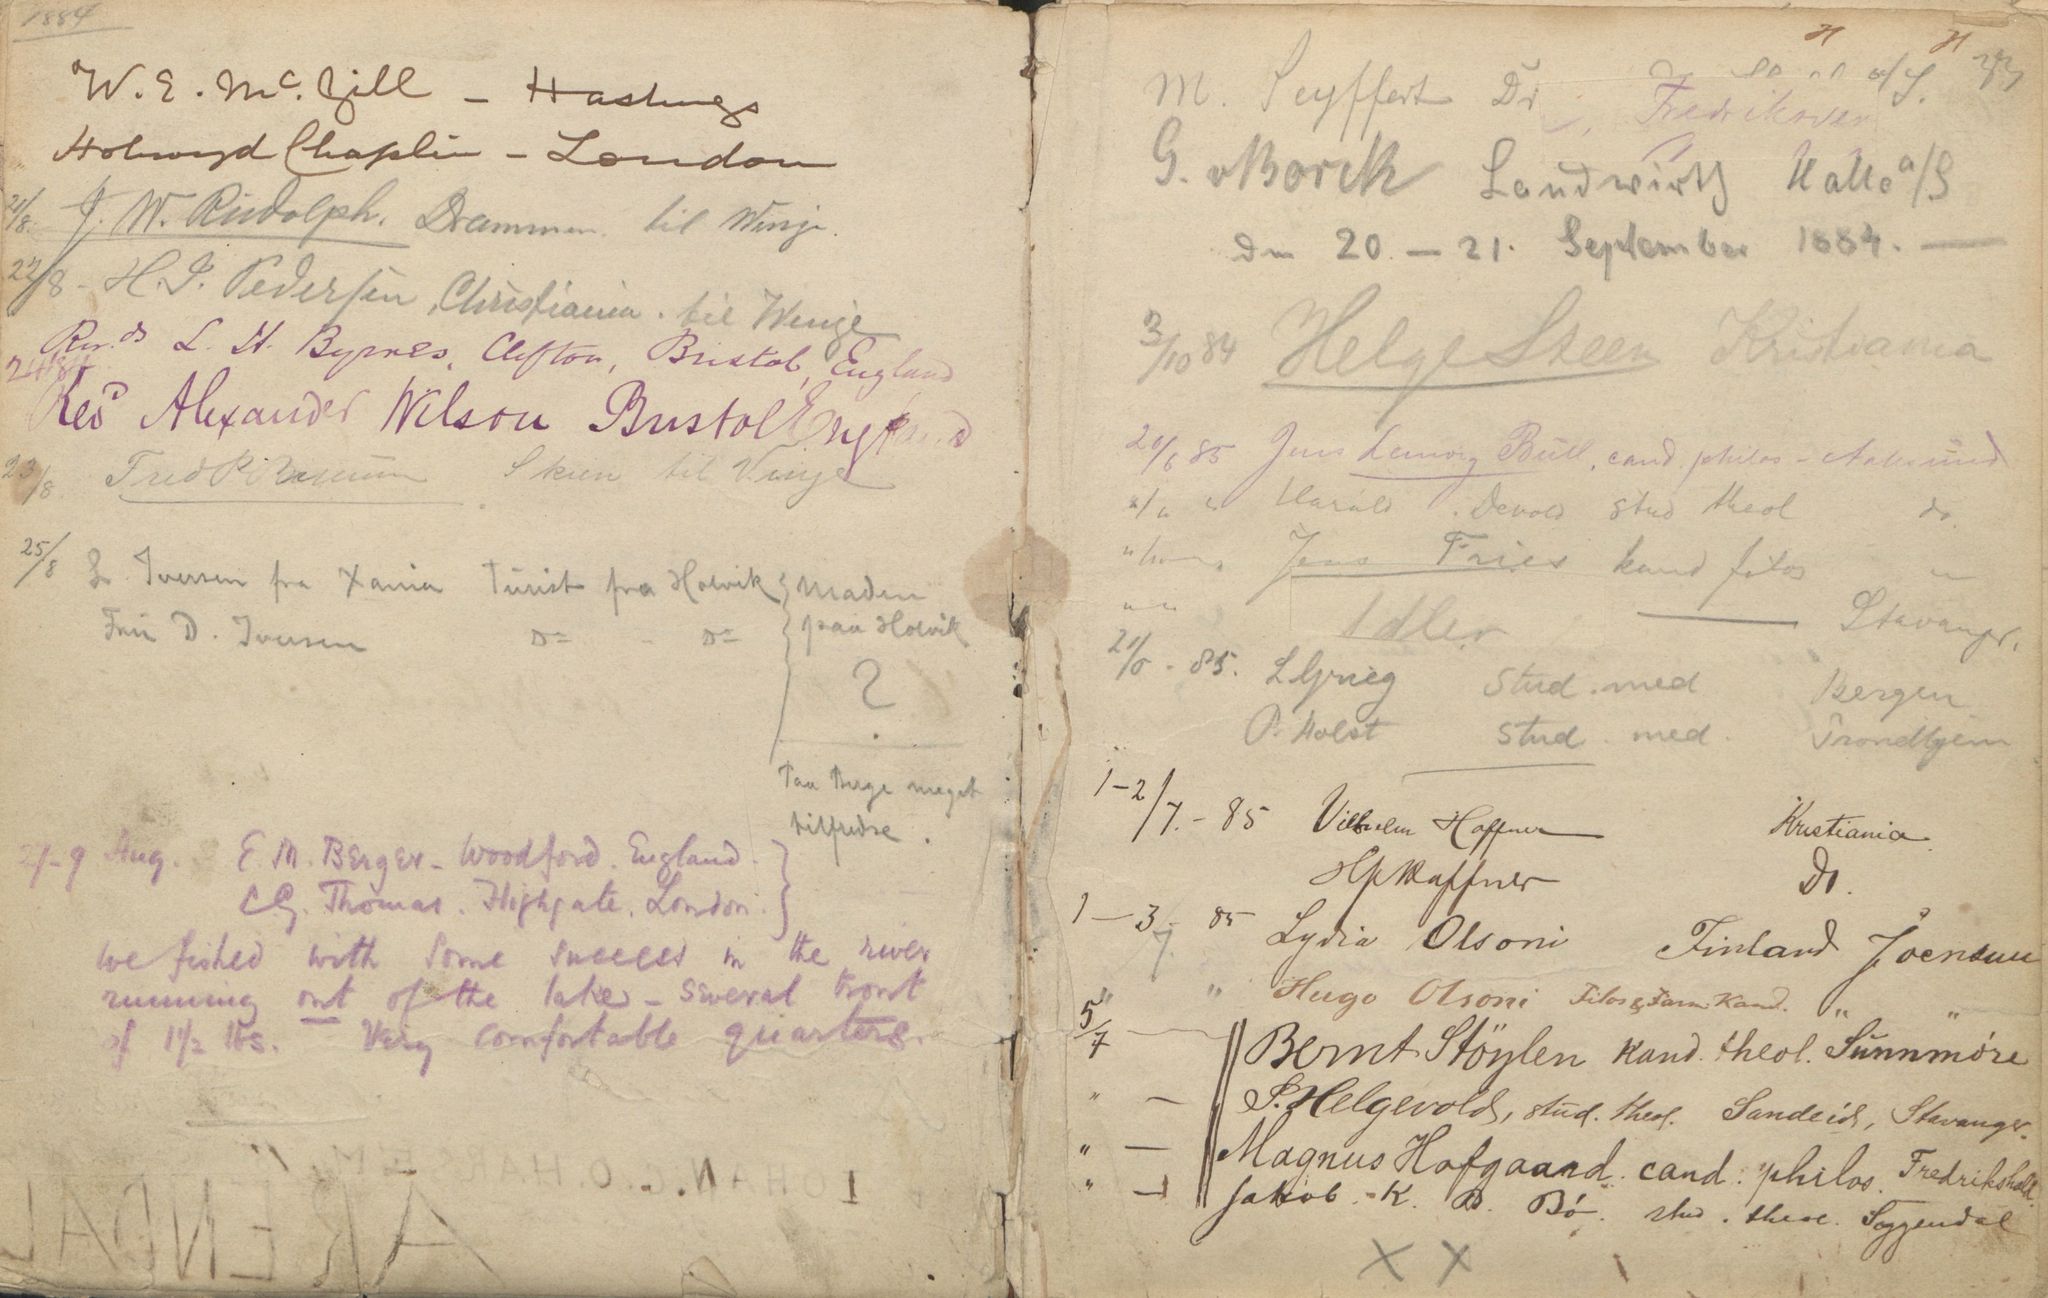 1884
W. E. McGill – Hastings
Holroyd Chaplin – London
21/8. J. W. Rudolph. Drammen til Winje.
22/8 - H. J. Pedersen, Christiania. til Winje
Revds L. H. Byrnes, Clifton, Bristol, England
24/84
Revd Alexander Wilson Bristol England
23/8. Skien til Vinje
25/8 L. Iversen fra Xania Turist fra Holvik } Maden
Frü D. Iversen Do - Do paa Holvik
?
Paa Berge meget
tilfredse.
Aug. E. M. Berger – Woodford. England. }
C. G. Thomas. Highgate. London. }
We fished with some success in the river
running out of the lake – several trout
of 1½ lbs. – Very comfortable quarters.
JOHAN. C. O. HARSEIM.
ARENDAL
M. Seyffert Dr
G. v Borck Landwirth Halle a/S
Den 20. – 21. September 1884. –
3/10 84 Helge Steen Kristiania
20/6 85 Jens Ludvig Bull, cand. philos – Aalesund
"/" " Harald Devold stud theol do
Jens Fries kand filos "
" " Adler Stavanger.
21/6 - 85. L Grieg stud. med Bergen
P. Holst stud. med. Trondhjem
1–2/7. – 85 Vilhelm Haffner Kristiania
HpHaffner Do.
1 – 3/7. 85 Lydia Olsoni Finland Joensuu
" " Hugo Olsoni Filos & Farm Kand. " "
5/7 – Bernt Støylen kand. theol. Sunnmöre
" – S. Helgevold, stud. theol. Sandeid, Stavanger.
" – Magnus Hofgaard. cand. philos. Fredrikshald.
" – Jakob. K. B. Bö. stud. theol. Soggendal
X X